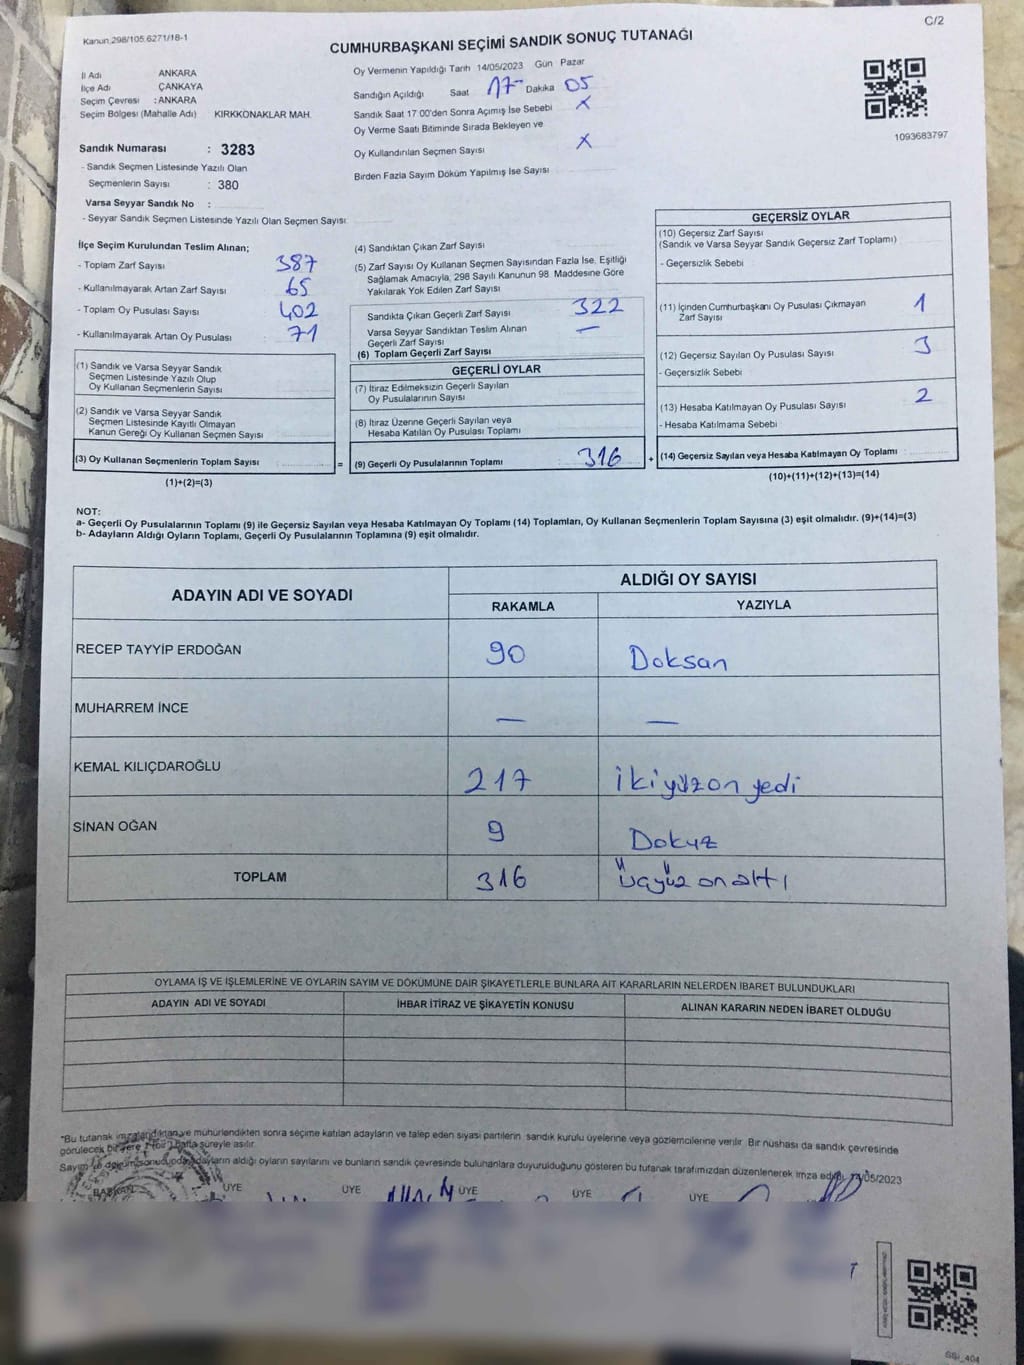 C/2
Kanun:298/105.6271/18-1
CUMHURBAŞKANI SEÇİMİ SANDIK SONUÇ TUTANAĞI
İl Adı ANKARA
İlçe Adı ÇANKAYA
Seçim Çevresi : ANKARA
Seçim Bölgesi (Mahalle Adı) KIRKKONAKLAR MAH.
Sandık Numarası : 3283
- Sandık Seçmen Listesinde Yazılı Olan
Seçmenlerin Sayısı : 380
Varsa Seyyar Sandık No :
- Seyyar Sandık Seçmen Listesinde Yazılı Olan Seçmen Sayısı:
Oy Vermenin Yapıldığı Tarih 14/05/2023 Gün Pazar
Sandığın Açıldığı Saat 17 Dakika 05
Sandık Saat 17:00'den Sonra Açımış İse Sebebi X
Oy Verme Saati Bitiminde Sırada Bekleyen ve
Oy Kullandırılan Seçmen Sayısı X
Birden Fazla Sayım Döküm Yapılmış İse Sayısı
1093683797
İlçe Seçim Kurulundan Teslim Alınan;
- Toplam Zarf Sayısı 387
- Kullanılmayarak Artan Zarf Sayısı 65
- Toplam Oy Pusulası Sayısı 402
- Kullanılmayarak Artan Oy Pusulası 71
(1) Sandık ve Varsa Seyyar Sandık
Seçmen Listesinde Yazılı Olup
Oy Kullanan Seçmenlerin Sayısı
(2) Sandık ve Varsa Seyyar Sandık
Seçmen Listesinde Kayıtlı Olmayan
Kanun Gereği Oy Kullanan Seçmen Sayısı
(3) Oy Kullanan Seçmenlerin Toplam Sayısı =
(1)+(2)=(3)
(4) Sandıktan Çıkan Zarf Sayısı
(5) Zarf Sayısı Oy Kullanan Seçmen Sayısından Fazla İse, Eşitliği
Sağlamak Amacıyla, 298 Sayılı Kanunun 98. Maddesine Göre
Yakılarak Yok Edilen Zarf Sayısı
Sandıkta Çıkan Geçerli Zarf Sayısı 322
Varsa Seyyar Sandıktan Teslim Alınan
Geçerli Zarf Sayısı —
(6) Toplam Geçerli Zarf Sayısı
GEÇERLİ OYLAR
(7) İtiraz Edilmeksizin Geçerli Sayılan
Oy Pusulalarının Sayısı
(8) İtiraz Üzerine Geçerli Sayılan veya
Hesaba Katılan Oy Pusulası Toplamı
(9) Geçerli Oy Pusulalarının Toplamı : 316 +
GEÇERSİZ OYLAR
(10) Geçersiz Zarf Sayısı
(Sandık ve Varsa Seyyar Sandık Geçersiz Zarf Toplamı)
- Geçersizlik Sebebi
(11) İçinden Cumhurbaşkanı Oy Pusulası Çıkmayan
Zarf Sayısı 1
(12) Geçersiz Sayılan Oy Pusulası Sayısı 3
- Geçersizlik Sebebi
(13) Hesaba Katılmayan Oy Pusulası Sayısı 2
- Hesaba Katılmama Sebebi
(14) Geçersiz Sayılan veya Hesaba Katılmayan Oy Toplamı :
(10)+(11)+(12)+(13)=(14)
NOT:
a- Geçerli Oy Pusulalarının Toplamı (9) ile Geçersiz Sayılan veya Hesaba Katılmayan Oy Toplamı (14) Toplamları, Oy Kullanan Seçmenlerin Toplam Sayısına (3) eşit olmalıdır. (9)+(14)=(3)
b- Adayların Aldığı Oyların Toplamı, Geçerli Oy Pusulalarının Toplamına (9) eşit olmalıdır.
ADAYIN ADI VE SOYADI ALDIĞI OY SAYISI
RAKAMLA YAZIYLA
RECEP TAYYİP ERDOĞAN 90 Doksan
MUHARREM İNCE — —
KEMAL KILIÇDAROĞLU 217 ikiyüzon yedi
SİNAN OĞAN 9 Dokuz
TOPLAM 316 üçyüz onaltı
OYLAMA İŞ VE İŞLEMLERİNE VE OYLARIN SAYIM VE DÖKÜMÜNE DAİR ŞİKAYETLERLE BUNLARA AİT KARARLARIN NELERDEN İBARET BULUNDUKLARI
ADAYIN ADI VE SOYADI İHBAR İTİRAZ VE ŞİKAYETİN KONUSU ALINAN KARARIN NEDEN İBARET OLDUĞU
*Bu tutanak imzalandıktan ve mühürlendikten sonra seçime katılan adayların ve talep eden siyasi partilerin sandık kurulu üyelerine veya gözlemcilerine verilir. Bir nüshası da sandık çevresinde
görülecek bir yere 1 (bir) hafta süreyle asılır.
Sayım ve döküm sonucunda adayların aldığı oyların sayılarını ve bunların sandık çevresinde bulunanlara duyurulduğunu gösteren bu tutanak tarafımızdan düzenlenerek imza edildi. 14/05/2023
BAŞKAN ÜYE ÜYE ÜYE ÜYE ÜYE